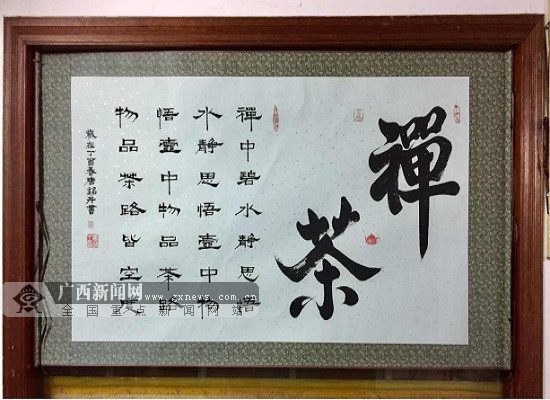 禪茶
禪中碧水靜思悟
水靜思悟壺中物
悟壺中物品茶路
物品茶路皆空度
歲在丁酉春唐銘丹書
广西新闻网
www.gxnews.com.cn
全国重点新闻网站